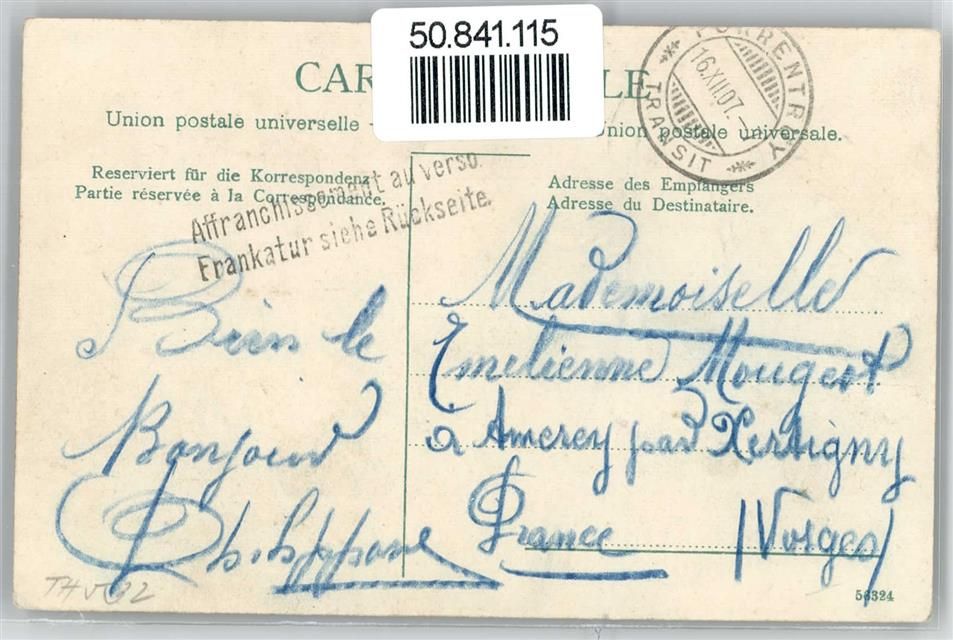 50.841.115
CAR LE
Union postale universelle - Union postale universale.
PORRENTRUY
16.XII.07.-
TRANSIT
Reserviert für die Korrespondenz
Partie réservée à la Correspondance.
Adresse des Empfängers
Adresse du Destinataire.
Affranchissement au verso.
Frankatur siehe Rückseite.
Bien le
Bonjour
Mademoiselle
Emelienne Mougeot
à Amerey par Xertigny
France (Vosges)
56324